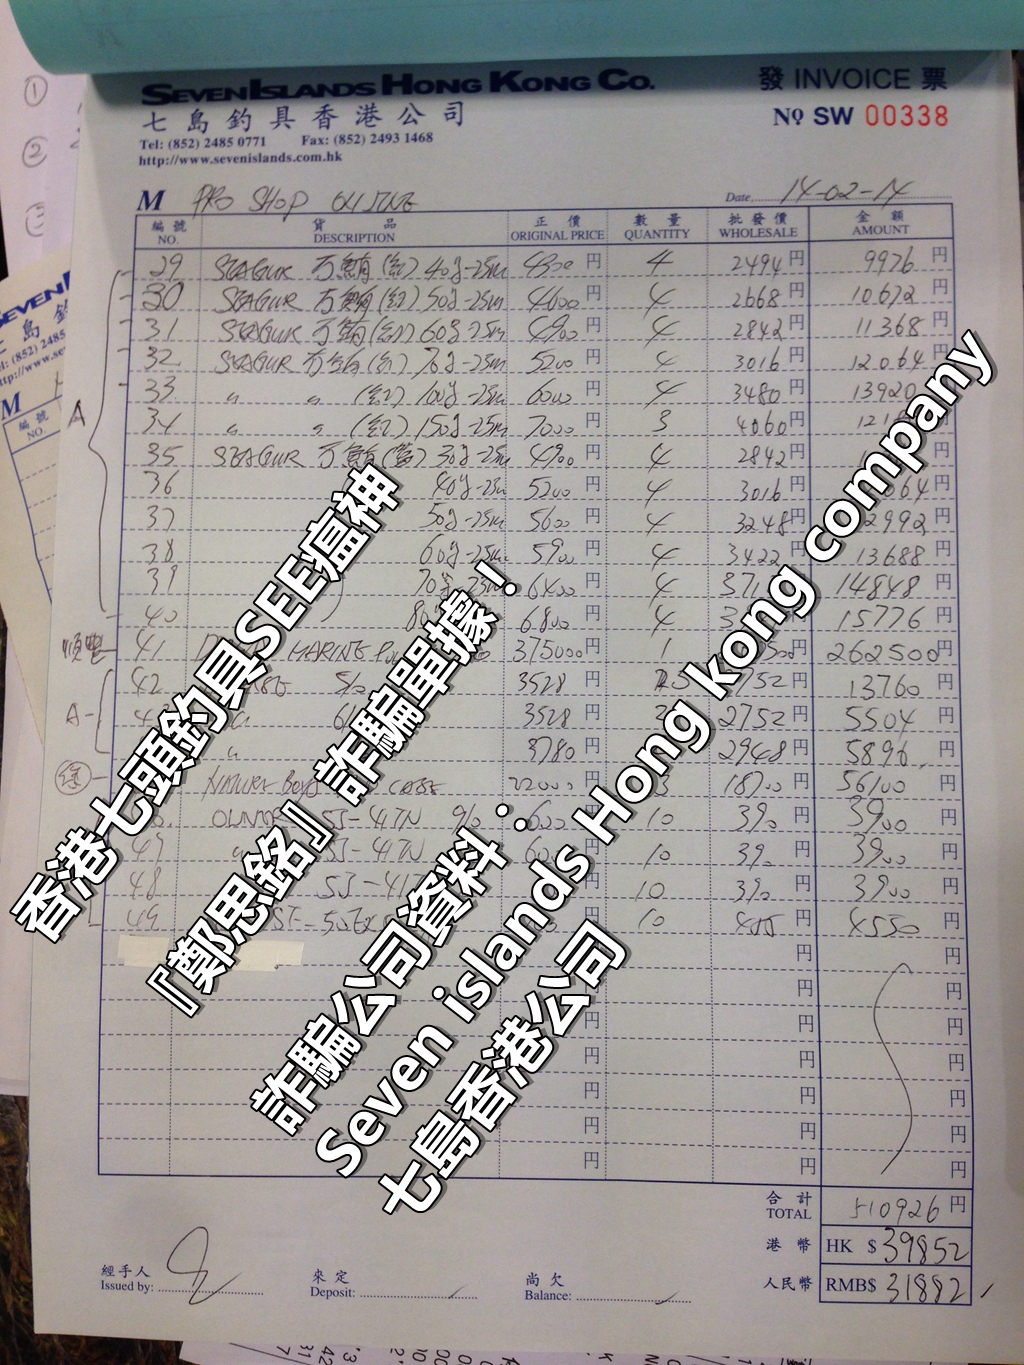 SEVEN ISLANDS HONG KONG CO.
七島釣具香港公司
Tel: (852) 2485 0771 Fax: (852) 2493 1468
http://www.sevenislands.com.hk
發 INVOICE 票
№ SW 00338
M PRO SHOP
Date 14-02-14
編號 貨品 正價 數量 批發價 金額
NO. DESCRIPTION ORIGINAL PRICE QUANTITY WHOLESALE AMOUNT
29 SEAGUR 万鮪(紅) 40g-25m 4300円 4 2494円 9976円
30 SEAGUR 万鮪(紅) 50g-25m 4600円 4 2668円 10672円
31 SEAGUR 万鮪(紅) 60g-25m 4900円 4 2842円 11368円
32 SEAGUR 万鮪(紅) 70g-25m 5200円 4 3016円 12064円
33 〃 〃 (紅) 100g-25m 6000円 4 3480円 13920
34 〃 〃 (紅) 150g-25m 7000円 3 4060円
35 SEAGUR 万鮪 30g-25m 4900円 4 2842円 円
36 40g-25m 5200円 4 3016円 円
37 50g-25m 5600円 4 3248円 2992円
38 60g-25m 5900円 4 3422円 13688円
39 70g-25m 6400円 4 14848円
40 6800円 4 15776円
41 MARINE 375000円 1 円 262500円
42 5/0 3528円 752円 13760円
〃 6/ 3528円 2752円 5504円
〃 3780円 2948円 5896円
NATURE BOYS CASE 22000円 18700円 56100円
OWNER SJ-41TN 9/0 600円 10 390円 3900円
〃 SJ-41TN 10 390円 3900円
48 SJ-41 10 390円 3900円
49 10 455円 4550円
円 円
円 円
円 円
円 円
円 円
円 円
円 円
A
順豐
A
合計
TOTAL 510926円
港幣 HK $ 39852
人民幣 RMB$ 31882
經手人
Issued by:
來定
Deposit:
尚欠
Balance:
香港七頭釣具SEE瘟神
『鄭思銘』詐騙單據！
詐騙公司資料：
Seven islands Hong kong company
七島香港公司